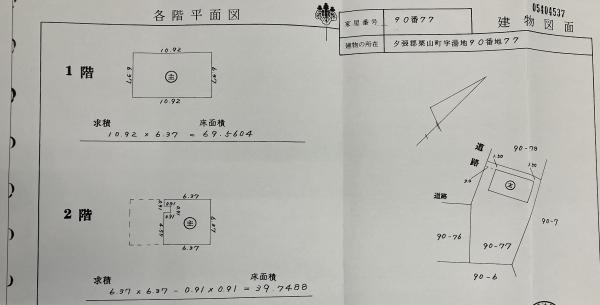 各階平面図
家屋番号 90番77
建物図面
05404537
建物の所在 夕張郡栗山町字湯地90番地77
1階
10.92
6.37
主
6.37
10.92
求積 床面積
10.92 × 6.37 = 69.5604
2階
6.37
0.91
0.91
0.91
0.91
主
6.37
6.37
求積 床面積
6.37 × 6.37 - 0.91 × 0.91 = 39.7488
道路
90-78
1.50
主
道路
90-7
90-76
90-77
90-6